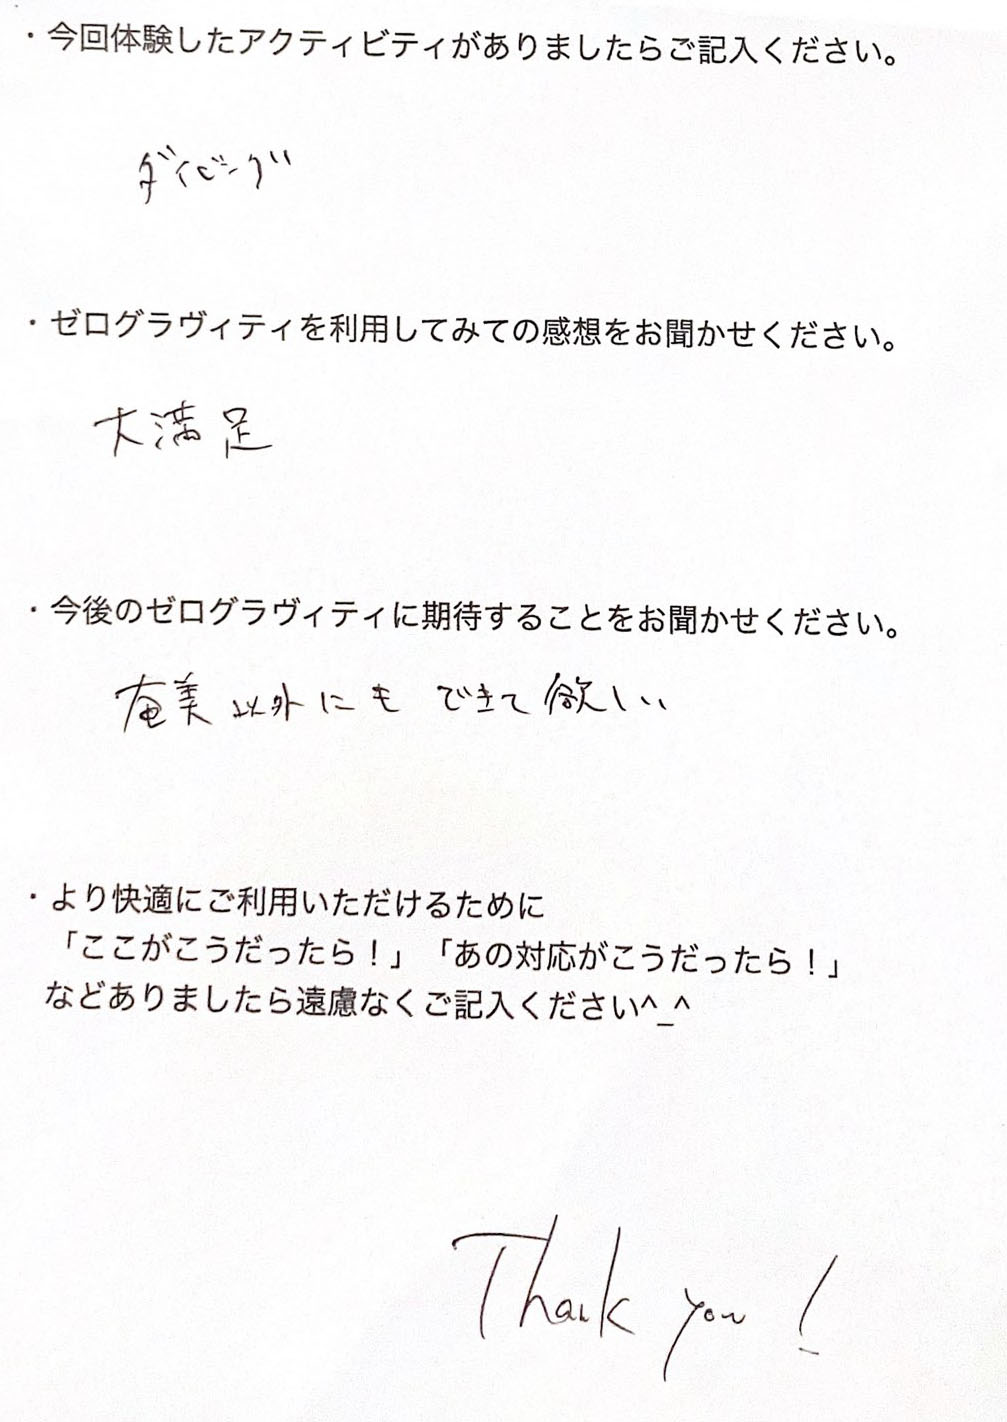 ・今回体験したアクティビティがありましたらご記入ください。
ダイビング
・ゼログラヴィティを利用してみての感想をお聞かせください。
大満足
・今後のゼログラヴィティに期待することをお聞かせください。
奄美以外にもできて欲しい
・より快適にご利用いただけるために
「ここがこうだったら！」「あの対応がこうだったら！」
などありましたら遠慮なくご記入ください^_^
Thank you !